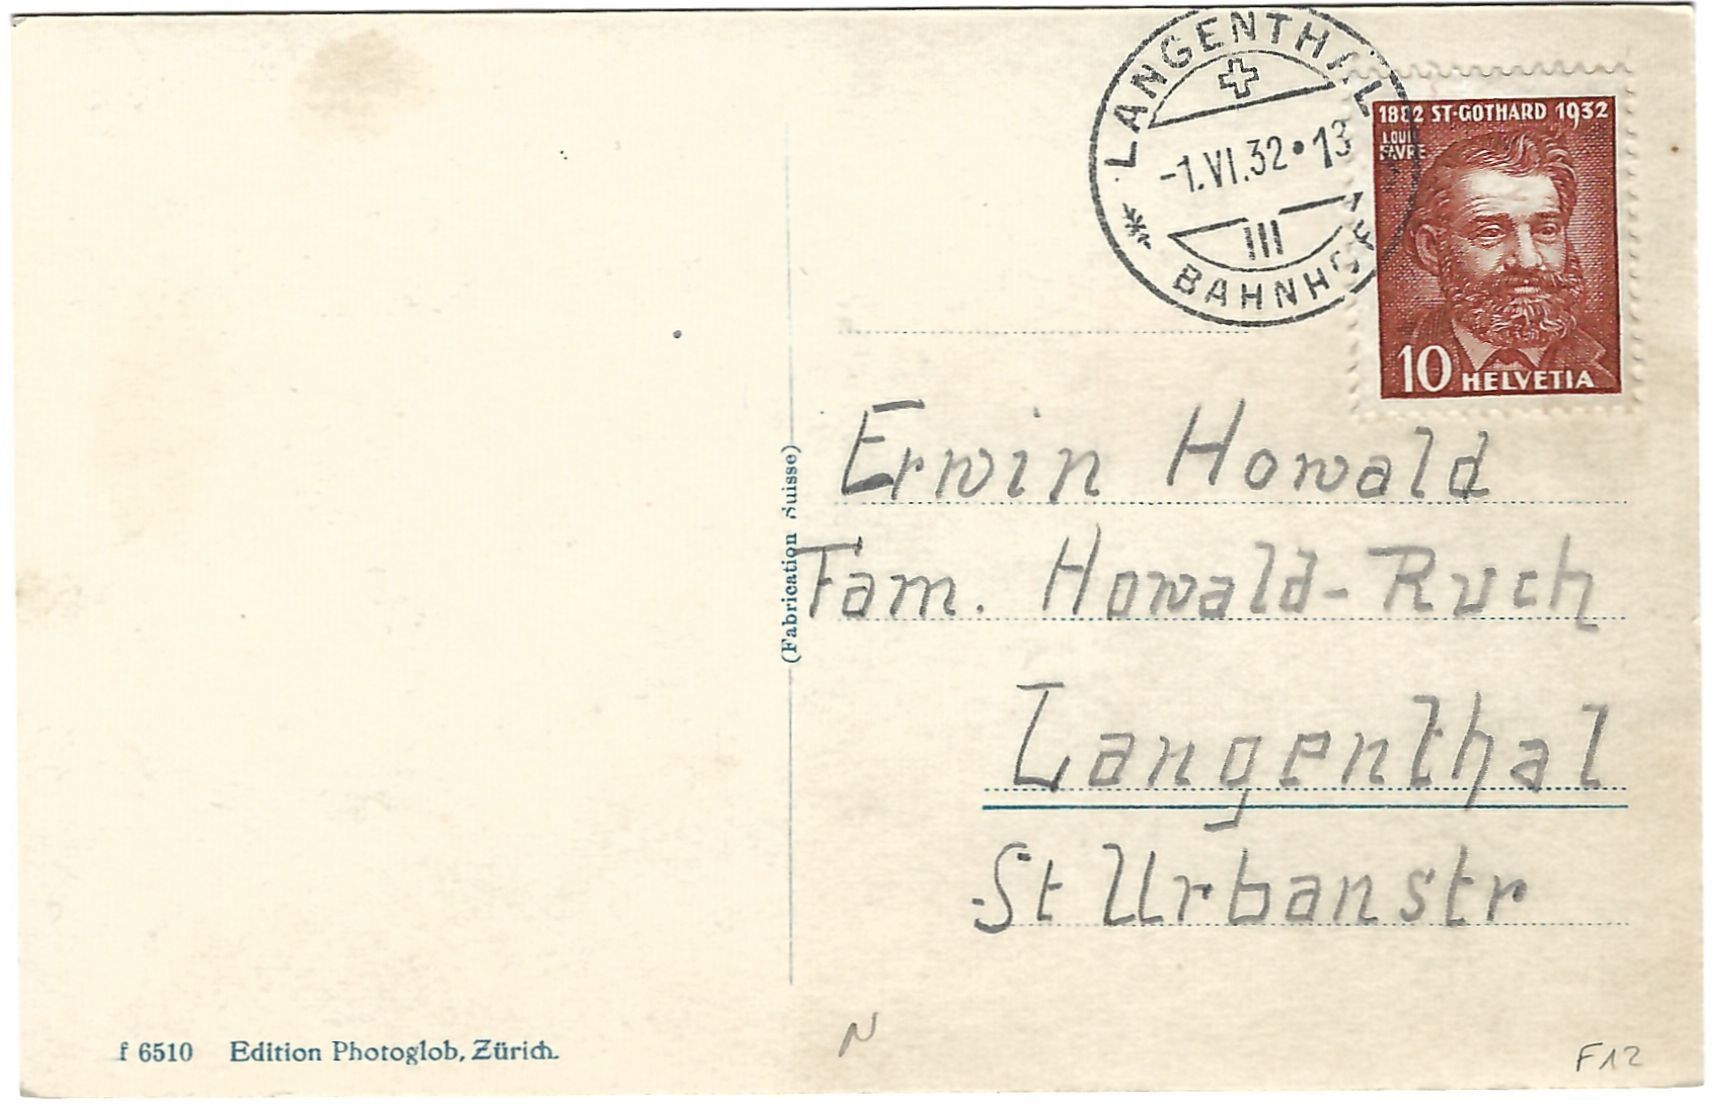 LANGENTHAL
-1.VI.32•13
III
BAHNHOF
1882 ST·GOTHARD 1932
LOUIS
FAVRE
10 HELVETIA
Erwin Howald
Fam. Howald-Ruch
Langenthal
St Urbanstr
(Fabrication Suisse)
f 6510 Edition Photoglob, Zürich.
N
F12